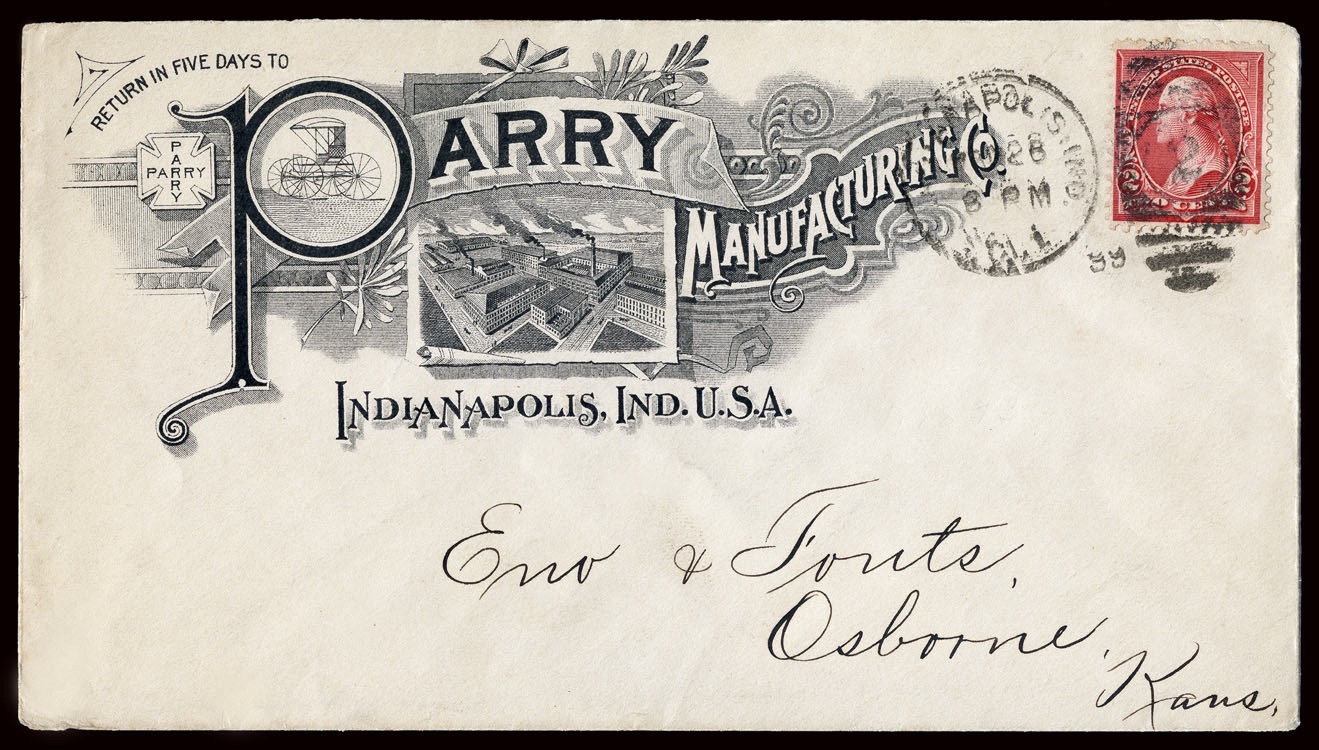 RETURN IN FIVE DAYS TO
PARRY
PARRY
PARRY
MANUFACTURING CO.
INDIANAPOLIS, IND. U.S.A.
28
8 PM
99
UNITED STATES POSTAGE
2 2
TWO CENTS
Eno & Fouts,
Osborne,
Kans.